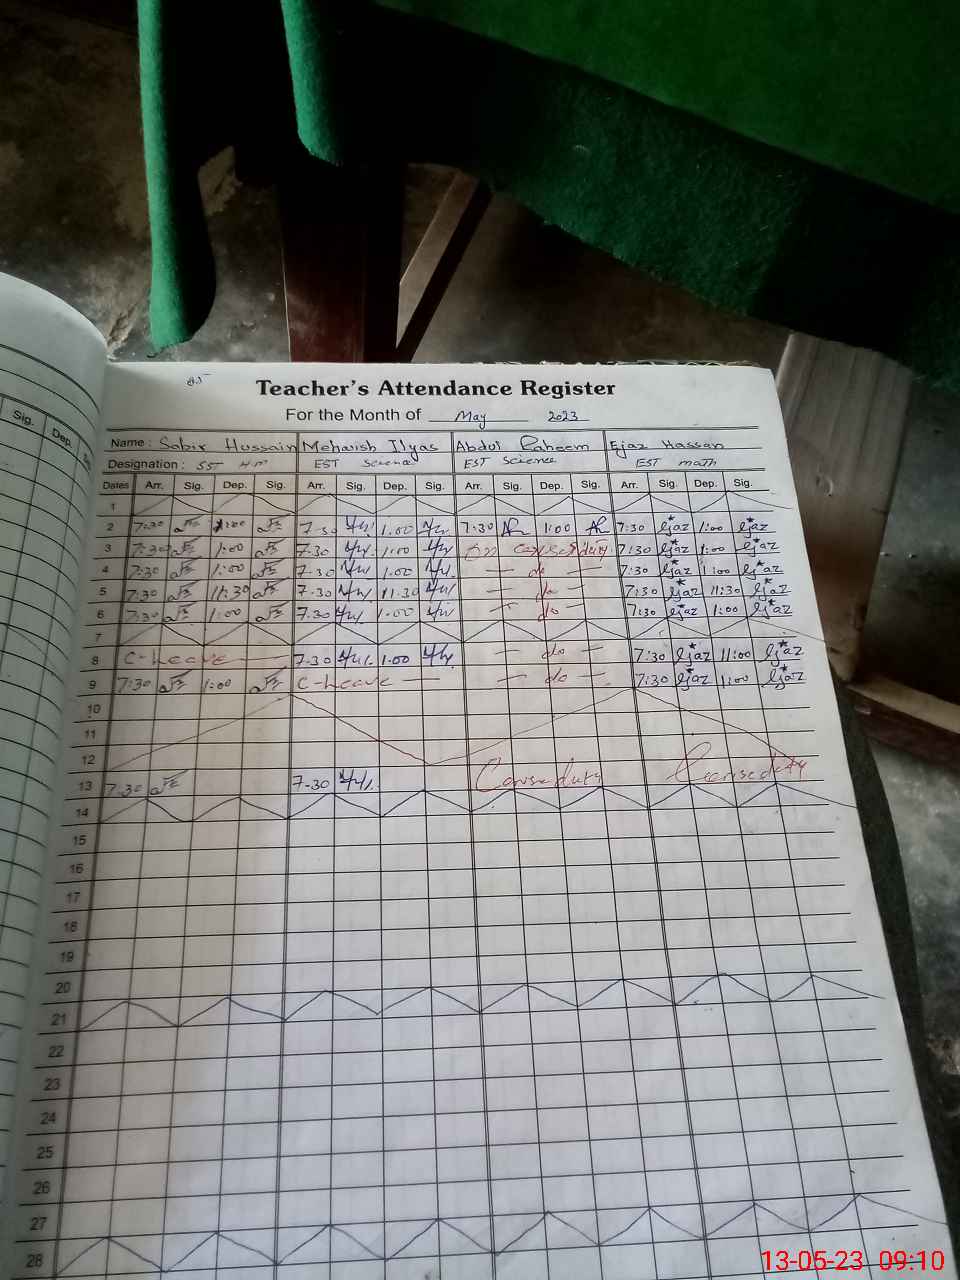 Sig. Dep.
Teacher's Attendance Register
For the Month of May 2023
Name : Sabir Hussain Mehwish Ilyas Abdul Raheem Ejaz Hassan
Designation : SST HM EST Science EST Science EST math
Dates Arr. Sig. Dep. Sig. Arr. Sig. Dep. Sig. Arr. Sig. Dep. Sig. Arr. Sig. Dep. Sig.
1
2 7:30 1:00 7-30 1.00 7:30 1:00 7:30 Ejaz 1:00 Ejaz
3 7:30 1:00 7-30 1.00 duty 7:30 Ejaz 1:00 Ejaz
4 7:30 1:00 7-30 1.00 — do — 7:30 Ejaz 1:00 Ejaz
5 7:30 11:30 7-30 11-30 — do — 7:30 Ejaz 11:30 Ejaz
6 7:30 1:00 7-30 1.00 — do — 7:30 Ejaz 1:00 Ejaz
7
8 C-Leave 7-30 1.00 — do — 7:30 Ejaz 11:00 Ejaz
9 7:30 1:00 C-Leave — — do — 7:30 Ejaz 1:00 Ejaz
10
11
12
13 7-30 7-30 duty duty
14
15
16
17
18
19
20
21
22
23
24
25
26
27
28
13-05-23 09:10